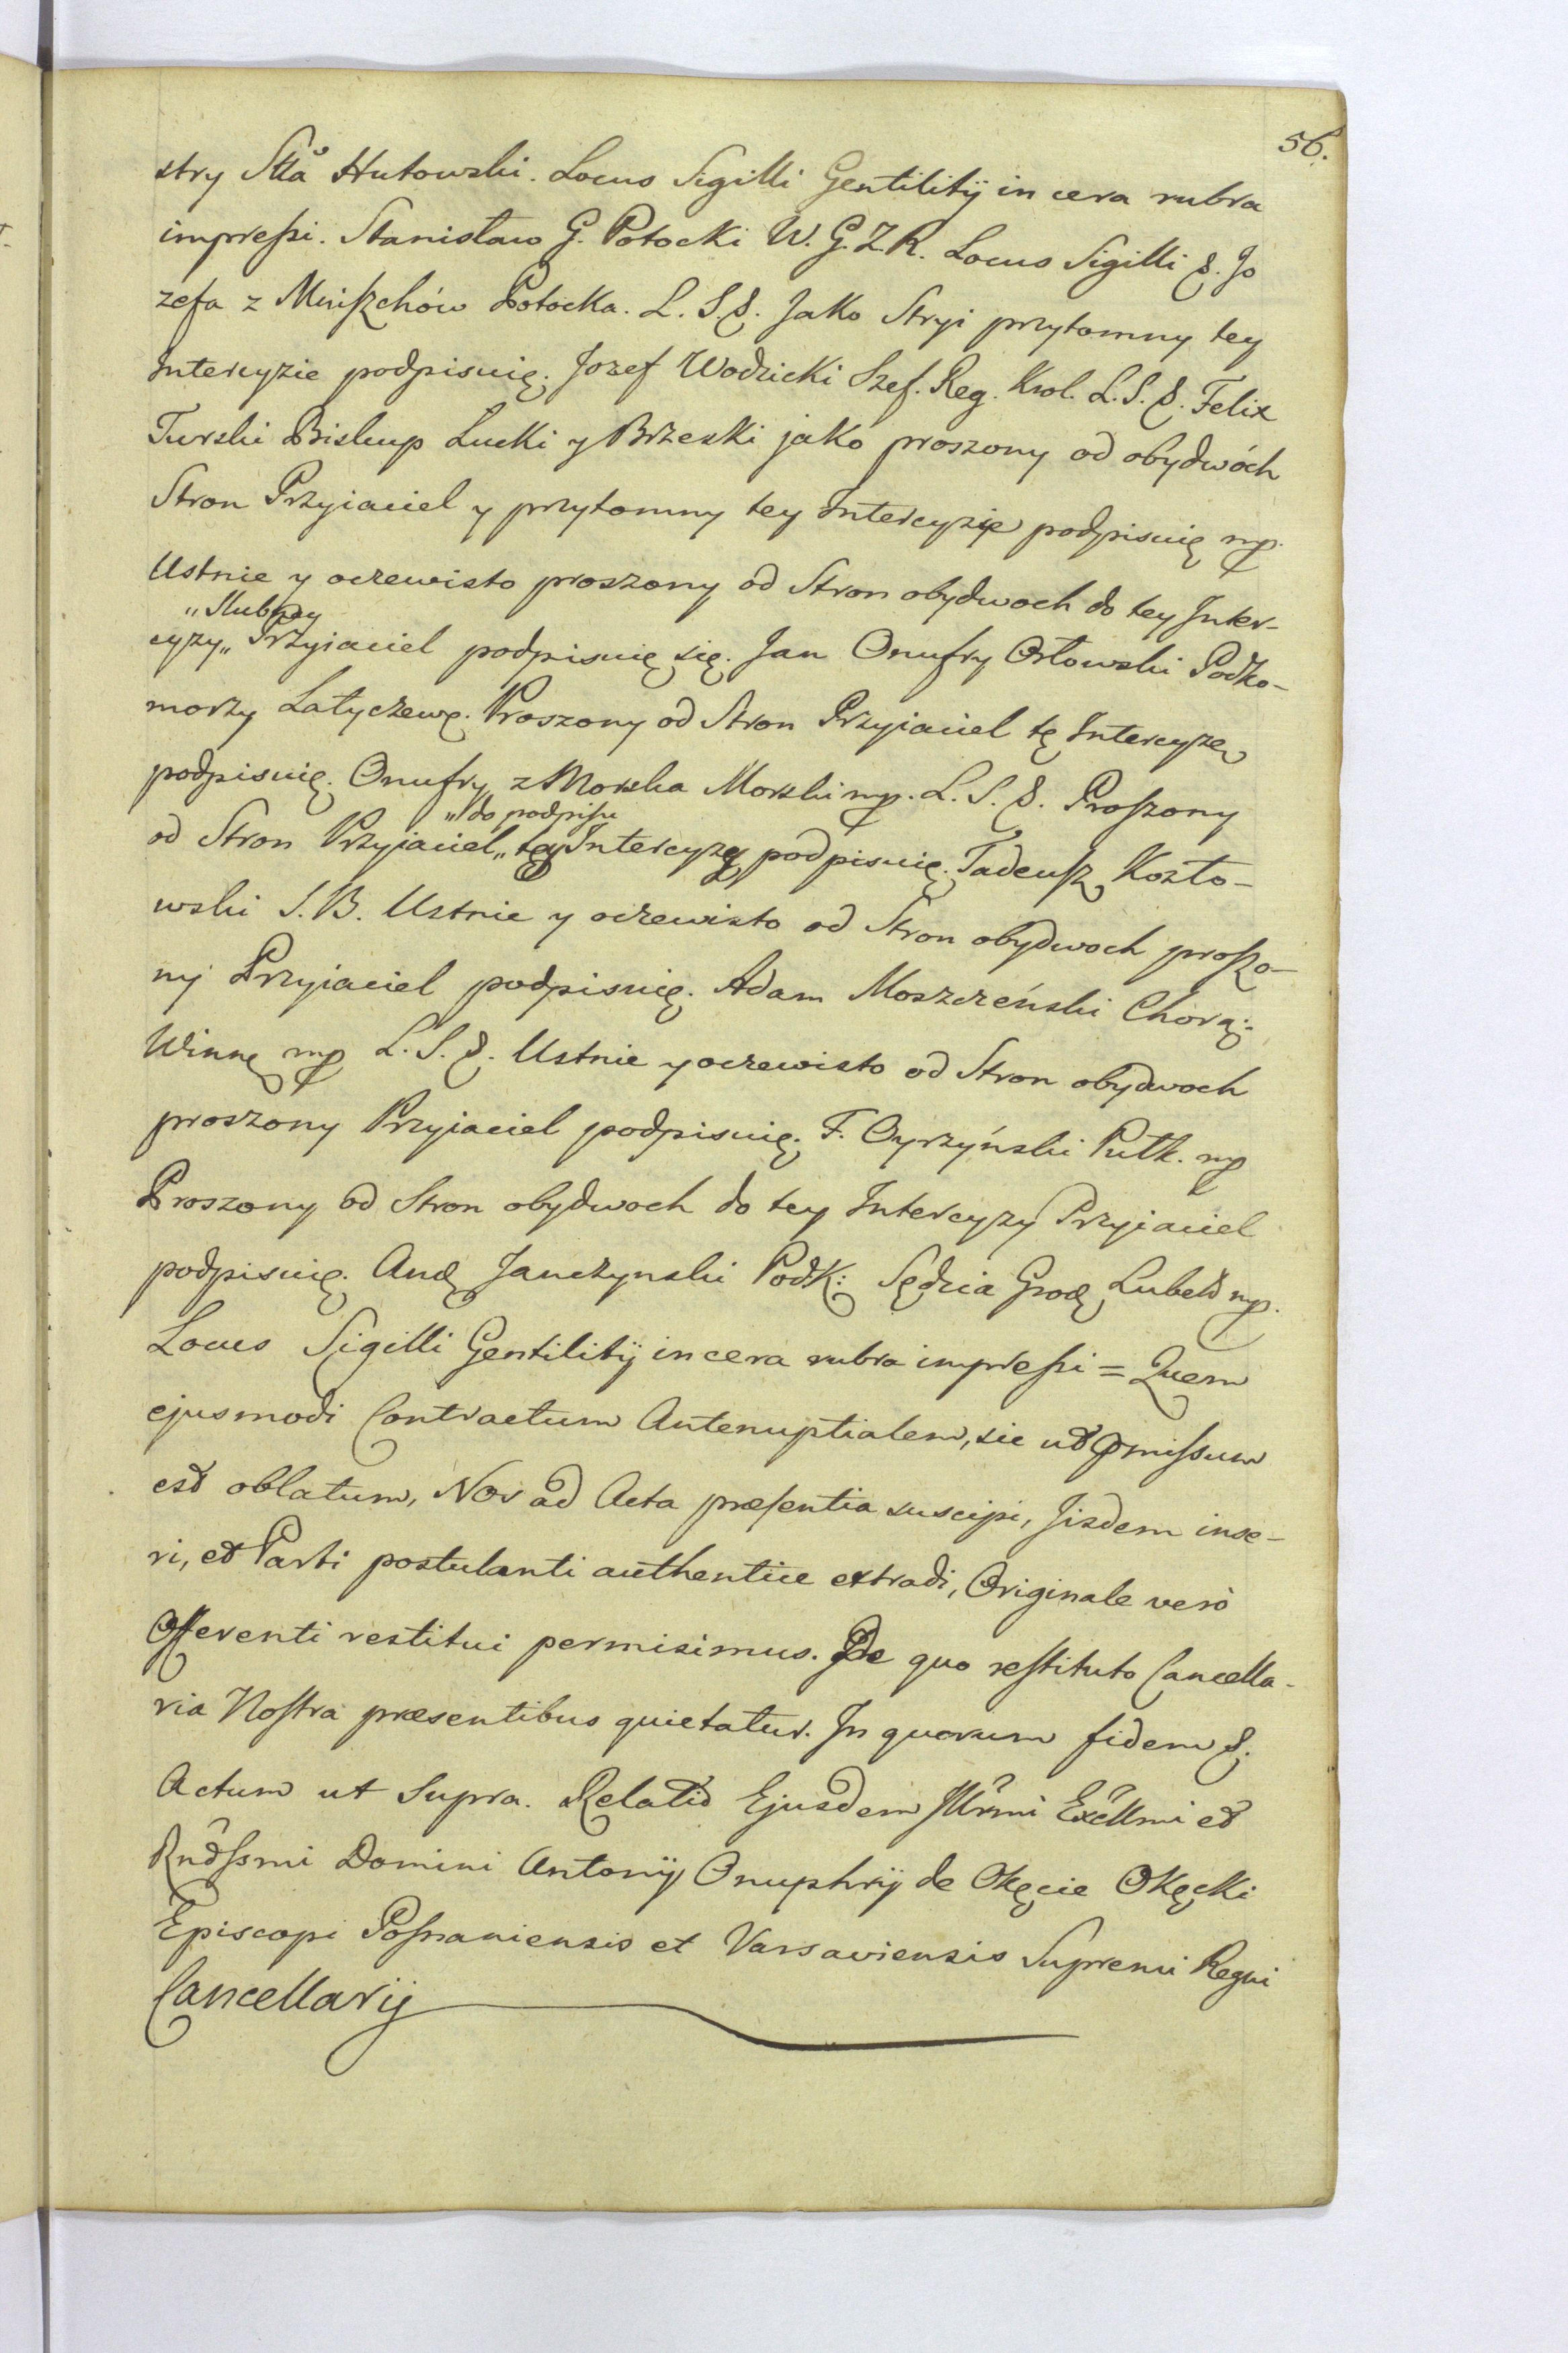 56.
stry Stta Hutowski. Locus Sigilli Gentilitÿ in cera rubra
impreſsi. Stanisław G. Potocki W. G. Z. R. Locus Sigilli &. Jo
zefa z Mniſzchów Potocka. L. S. &. Jako Stryi przytomny tey
Intercyzie podpisuię. Jozef Wodzicki Szef. Reg. Krol. L. S. &. Felix
Turski Biskup Łucki y Brzeski jako proszony od obydwóch
Stron Przyiaciel y przytomny tey Intercyzie podpisuię mp.
Ustnie y oczewisto proszony od Stron obydwoch do tey Inter-
„Slubney
cyzy„ Przyiaciel podpisuię się. Jan Onufry Orłowski Podko-
morzy Latyczew. Proszony od Stron Przyjaciel tę Intercyzę
podpisuię. Onufry z Morska Morski mp. L. S. &. Proſzony
„do podpisu
od Stron Przyjaciel„ tey Intercyzy podpisuię. Tadeuſz Kozło-
wski S. B. Ustnie y oczewisto od Stron obydwoch proſzo-
ny Przyjaciel podpisuię. Adam Moszczeński Chorą:
Winn. mp L. S. &. Ustnie y oczewisto od Stron obydwoch
proszony Przyiaciel podpisuię. F. Oyrzyński Pułk. mp
Proszony od Stron obydwoch do tey Intercyzy Przyiaciel
podpisuię. And. Janczynski Podk: Sędzia Grod. Lubel. mp.
Locus Sigilli Gentilitÿ in cera rubra impreſsi = Quem
ejusmodi Contractum Antenuptialem, sic ut pmiſsum
est oblatum, Nos ad Acta præſentia suscipi, Jisdem inse-
ri, et Parti postulanti authentice extradi, Originale verò
Offerenti restitui permisimus. De quo reſtituto Cancella-
ria Noſtra præsentibus quietatur. In quorum fidem &.
Actum ut Supra. Relatio Ejusdem Jllr̃mi Exc̃llmi et
Rnd̃ſsmi Domini Antonÿ Onuphrÿ de Okęcie Okęcki
Episcopi Poſnaniensis et Varsaviensis Supremi Regni
Cancellarÿ